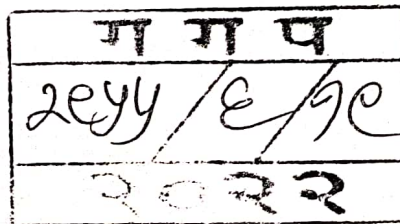 ग ग प
२९५५/६/१९
२०२२